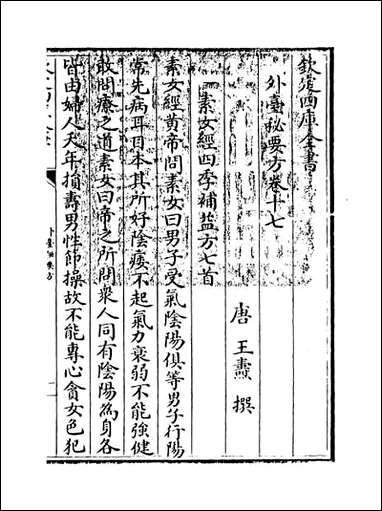 欽定四庫全書
外臺祕要方卷十七
唐 王燾 撰
素女經四季補益方七首
素女經黄帝問素女曰男子受氣陰陽俱等男子行陽
常先病耳目本其所好陰痿不起氣力衰弱不能強健
敢問療之道素女曰帝之所問衆人同有陰陽為身各
皆由婦人夭年損壽男性節操故不能專心貪女色犯
外臺祕要方